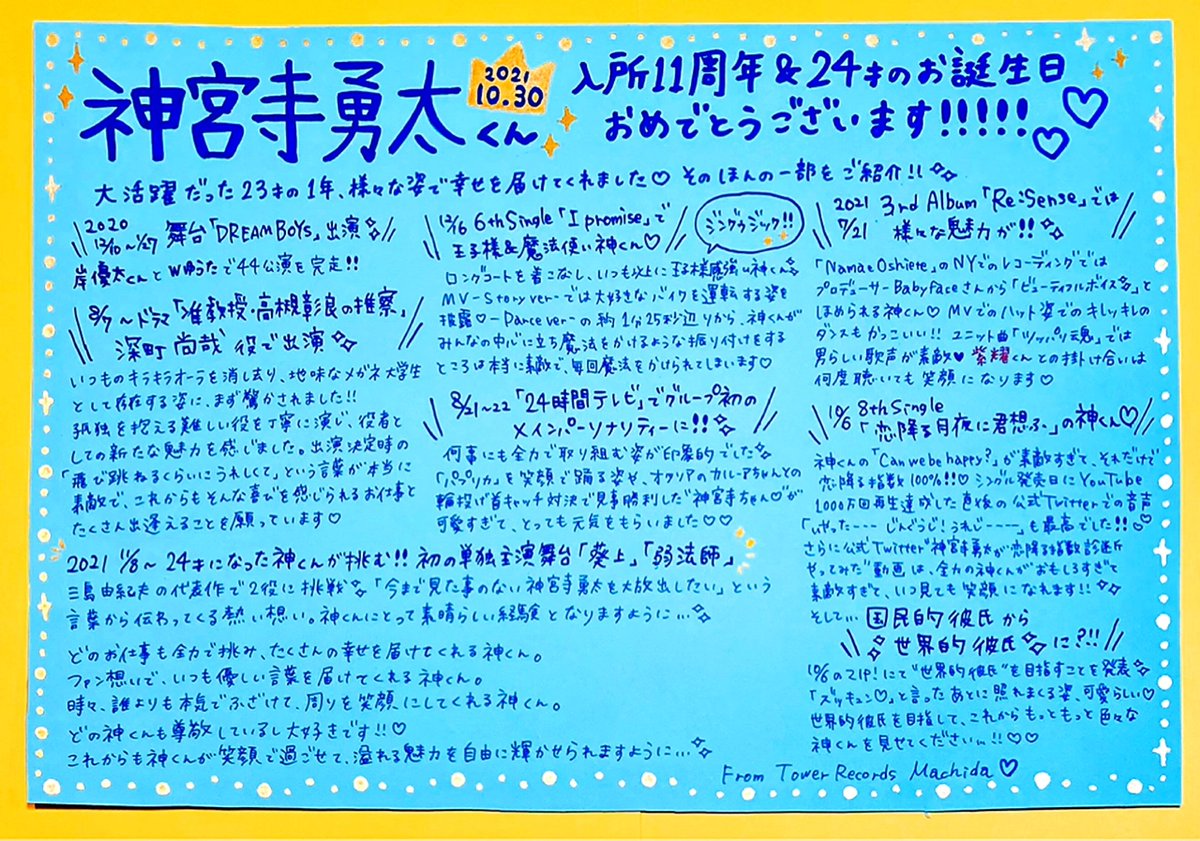 神宮寺勇太くん
2021
10.30
入所11周年&24才のお誕生日
おめでとうございます!!!!!
大活躍だった23才の1年、様々な姿で幸せを届けてくれました♡ そのほんの一部をご紹介!!
2020
12/10〜1/27 舞台「DREAM BOYS」出演
岸優太くんとWゆうたで44公演を完走!!
8/7〜ドラマ「准教授・高槻彰良の推察」
深町尚哉 役で出演
いつものキラキラオーラを消し去り、地味なメガネ大学生
として存在する姿に、まず驚かされました!!
孤独を抱える難しい役を丁寧に演じ、役者と
しての新たな魅力を感じました。出演決定時の
「飛び跳ねるくらいにうれしくて」という言葉が本当に
素敵で、これからもそんな喜びを感じられるお仕事と
たくさん出逢えることを願っています♡
12/16 6th Single「I promise」で
王子様&魔法使い神くん♡
ジングウジック!!
ロングコートを着こなし、いつも以上に王子様感強い神くん
MV-Story ver-では大好きなバイクを運転する姿を
披露♡-Dance ver-の約1分25秒辺りから、神くんが
みんなの中心に立ち魔法をかけるような振り付けをする
ところは本当に素敵で、毎回魔法をかけられてしまいます♡
8/21〜22「24時間テレビ」でグループ初の
メインパーソナリティーに!!
何事にも全力で取り組む姿が印象的でした
「パプリカ」を笑顔で踊る姿や、オタリアのカルアちゃんとの
輪投げ首キャッチ対決で見事勝利した"神宮寺ちゃん♡"が
可愛すぎて、とっても元気をもらいました♡♡
2021 3rd Album「Re:Sense」では
7/21 様々な魅力が!!
「Namae Oshiete」のNYでのレコーディングでは
プロデューサーBabyfaceさんから「ビューティフルボイス」と
ほめられる神くん♡ MVでのハット姿でのキレッキレの
ダンスもかっこいい!! ユニット曲「ツッパリ魂」では
男らしい歌声が素敵♥ 紫耀くんとの掛け合いは
何度聴いても笑顔になります♡
10/6 8th Single
「恋降る月夜に君想ふ」の神くん♡
神くんの「Can we be happy?」が素敵すぎて、それだけで
恋降る指数100%!!♡ シングル発売日にYouTube
1000万回再生達成した直後の公式Twitterでの音声
「いやったーーー じんぐうじ!うれじーーーー」も最高でした!!
さらに公式Twitter"神宮寺勇太が恋降る指数診断
やってみた"動画は、全力の神くんがおもしろすぎて
素敵すぎて、いつ見ても笑顔になれます!!
そして… 国民的彼氏から
世界的彼氏に?!!
10/6のZIP!にて"世界的彼氏"を目指すことを発表
「ズッキュン♡」と言ったあとに照れまくる姿、可愛らしい♡
世界的彼氏を目指して、これからもっともっと色々な
神くんを見せてください…!!♡♡
2021 11/8〜 24才になった神くんが挑む!! 初の単独主演舞台「葵上」「弱法師」
三島由紀夫の代表作で2役に挑戦「今まで見た事のない神宮寺勇太を大放出したい」という
言葉から伝わってくる熱い想い。神くんにとって素晴らしい経験となりますように…
どのお仕事も全力で挑み、たくさんの幸せを届けてくれる神くん。
ファン想いで、いつも優しい言葉を届けてくれる神くん。
時々、誰よりも本気でふざけて、周りを笑顔にしてくれる神くん。
どの神くんも尊敬しているし大好きです!!♡
これからも神くんが笑顔で過ごせて、溢れる魅力を自由に輝かせられますように…
From Tower Records Machida♡